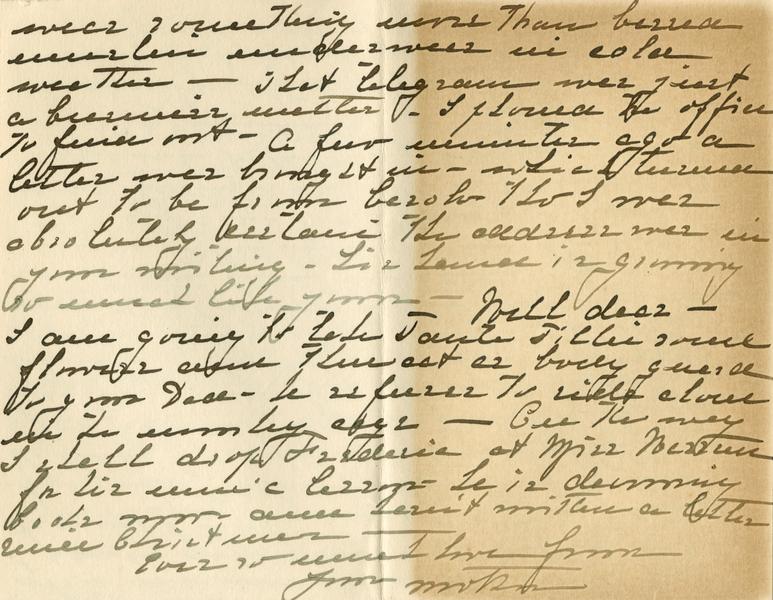 wear something more than barred
muslin underwear in cold
weather — that telegram was just
a business matter - I phoned the office
to find out - A few minutes ago a
letter was brought in - which turned
out to be from Tho I was
absolutely certain the address was in
your writing - his hand is growing
so much like yours — Well dear —
I am going to take Tante Tillie some
flowers and then act as body guard
to your Dad - he refuses to ride alone
in the cage — On the way
I shall drop Frederic at Miss
for his music lesson - he is
books now and hasn't written a letter
since Christmas —
Ever so much love from
your mother